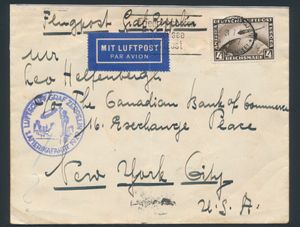 Flugpost Graf Zeppelin
MIT LUFTPOST
PAR AVION
DEUTSCHE
4 REICHSMARK 4
Mr
Leo Helfenberger
The Canadian Bank of Commerce
16 Exchange Place
LUFTSCHIFF GRAF ZEPPELIN
AMERIKAFAHRT
New York City
U.S.A.